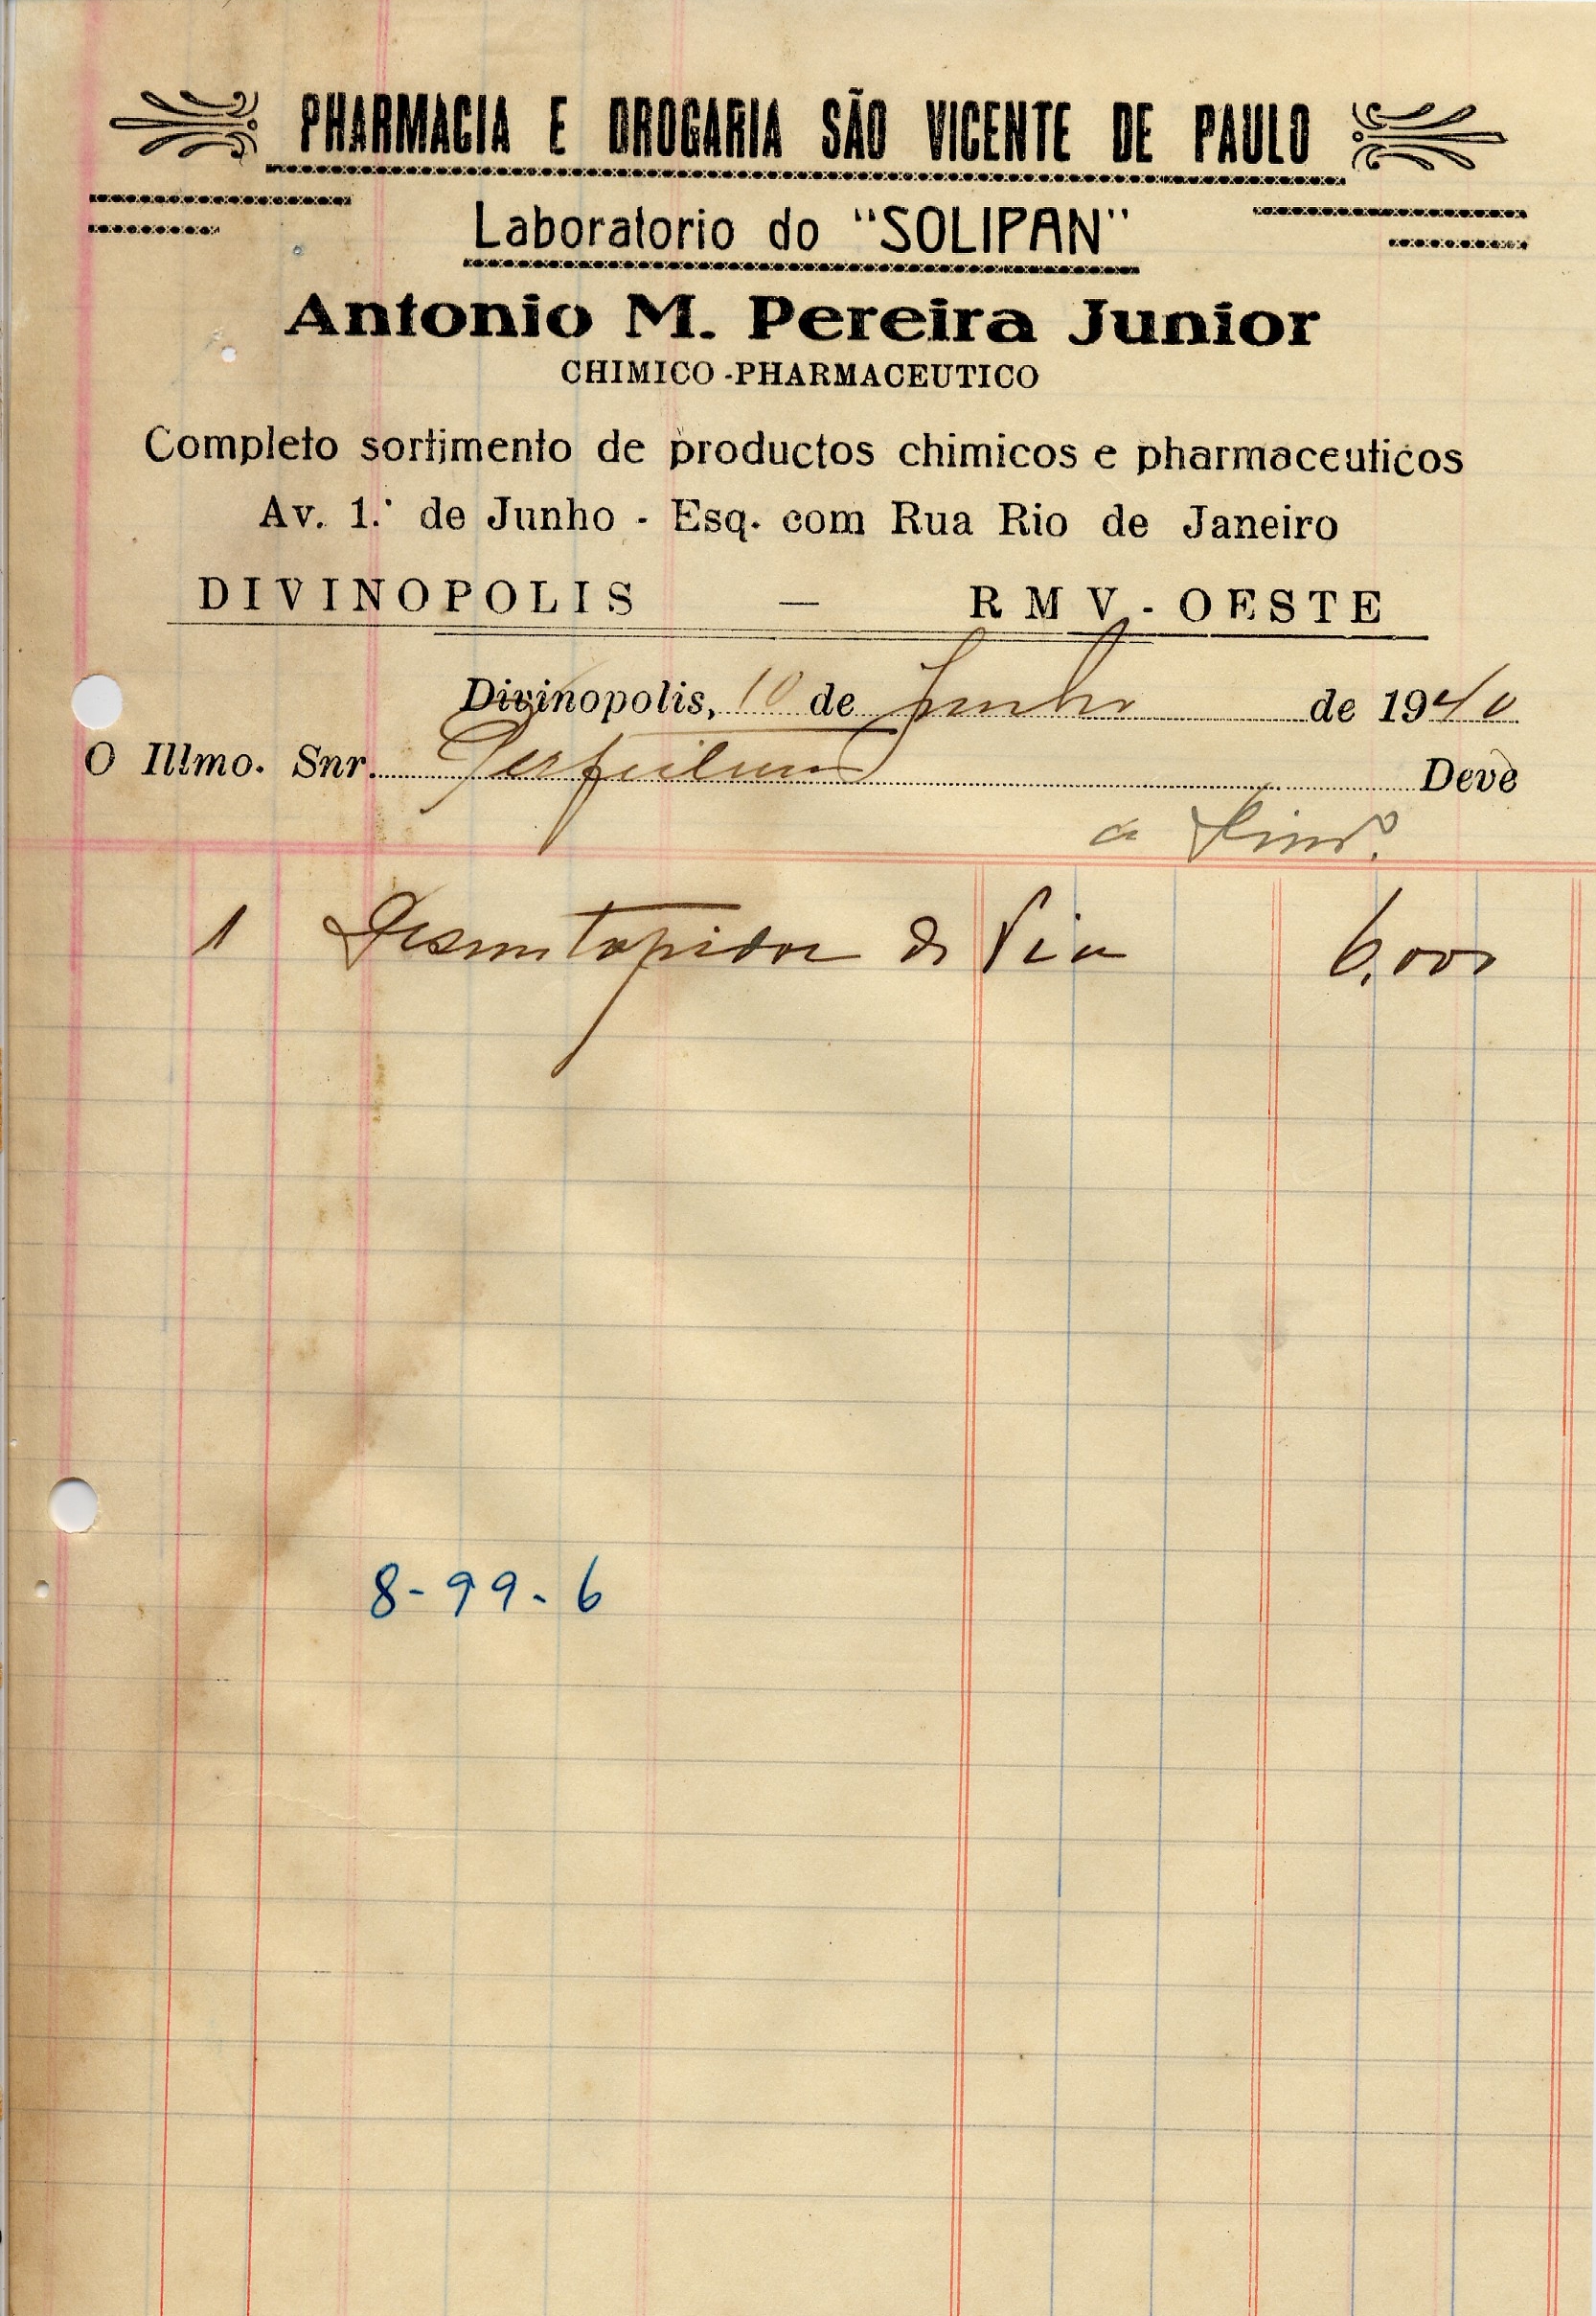 PHARMACIA E DROGARIA SÃO VICENTE DE PAULO
Laboratorio do "SOLIPAN"
Antonio M. Pereira Junior
CHIMICO-PHARMACEUTICO
Completo sortimento de productos chimicos e pharmaceuticos
Av. 1.º de Junho - Esq. com Rua Rio de Janeiro
DIVINOPOLIS — RMV-OESTE
Divinopolis, 10 de Junho de 1940
O Illmo. Snr. Deve
a
1 Desentupidor de Pia 6,000
8-99-6